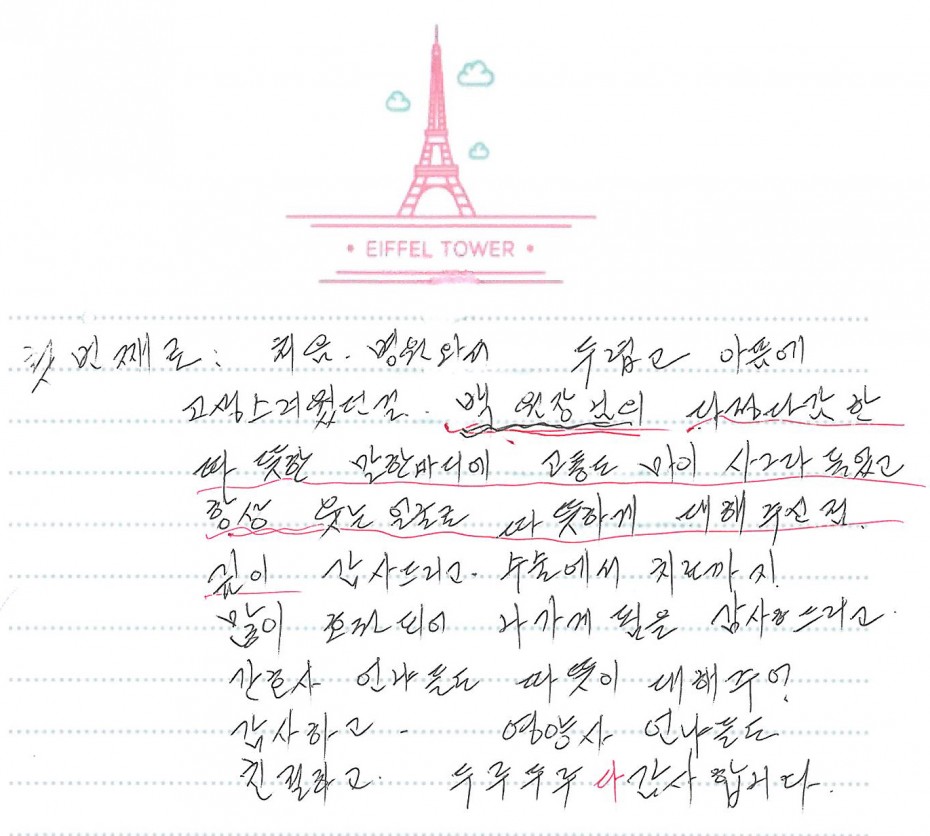 • EIFFEL TOWER •
첫번째로: 처음. 병원와서 두렵고 아픔에
고생스러웠던걸.. 백 원장님의 다정다감한
따뜻한 말한마디에 고통도 마이 사그라 들었고
항상 웃는얼굴로 따뜻하게 대해주신점.
깊이 감사드리고. 수술에서 치료까지
많이 호전되어 나가게 됨을 감사드리고.
간호사 언니들도 따뜻이 대해주어
감사하고. 영양사 언니들도
친절하고. 두루두루 다감사합니다.